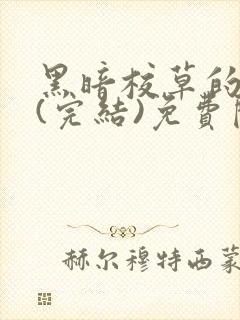 黑暗校草的
(完結)免費
赫尔穆特西蒙